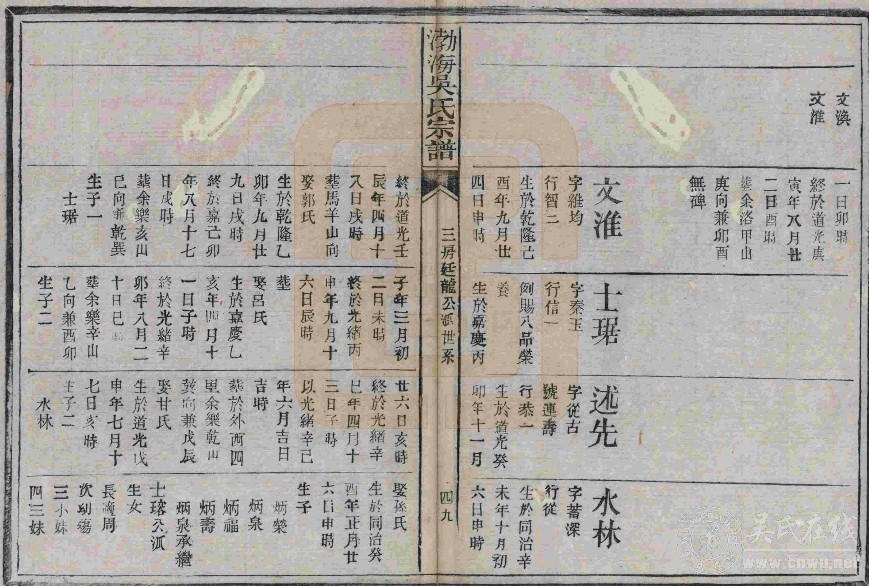 文渙
文淮
一日卯時
終於道光庚
寅年八月廿
二日酉時
葬余洛甲山
庚向兼卯酉
無碑
文淮
字維均
行智二
生於乾隆己
酉年九月廿
四日申時
士琚
字秦玉
行信一
例賜八品榮
養
生於嘉慶丙
述先
字從古
號連壽
行恭一
生於道光癸
卯年十一月
水林
字蓄深
行從
生於同治辛
未年十月初
六日申時
渤海吳氏宗譜
三房廷龍公派世系
四九
終於道光壬
辰年四月十
八日戌時
葬馬羊山向
娶郭氏
生於乾隆乙
卯年九月廿
九日戌時
終於嘉己卯
年八月十七
日戌時
葬余樂亥山
巳向兼乾巽
生子一
士琚
子年三月初
二日未時
終於光緒丙
申年九月十
六日辰時
葬
娶呂氏
生於嘉慶乙
亥年四月十
一日子時
終於光緒辛
卯年八月二
十日巳時
葬余樂辛山
乙向兼酉卯
生子二
廿六日亥時
終於光緒辛
巳年四月十
三日子時
以光緒辛巳
年六月吉日
吉時
葬於外西四
里余樂乾山
巽向兼戊辰
娶甘氏
生於道光戊
申年七月十
七日亥時
生子二
水林
娶孫氏
生於同治癸
酉年正月廿
六日申時
生子
炳榮
炳泉
炳福
炳壽
炳泉承繼
士瑹公派
生女
長適周
次幼殤
三小妹
四三妹
吳氏在线
www.cnwu.net